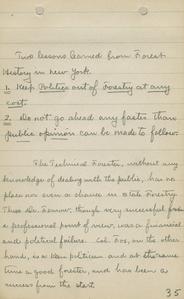 Two lessons learned from Forest
History in new york.
1. Keep Politics out of Forestry at any
cost.
2. Do not go ahead any faster than
public opinion can be made to follow.
The Technical Forester, without any
knowledge of dealing with the public, has no
place nor even a chance in State Forestry.
Thus Dr. Fernow, though very successful from
a professional point of view, was a financial
and political failure. Col. Fox, on the other
hand, is a keen politician and at the same
time a good forester, and has been a
success from the start.
35